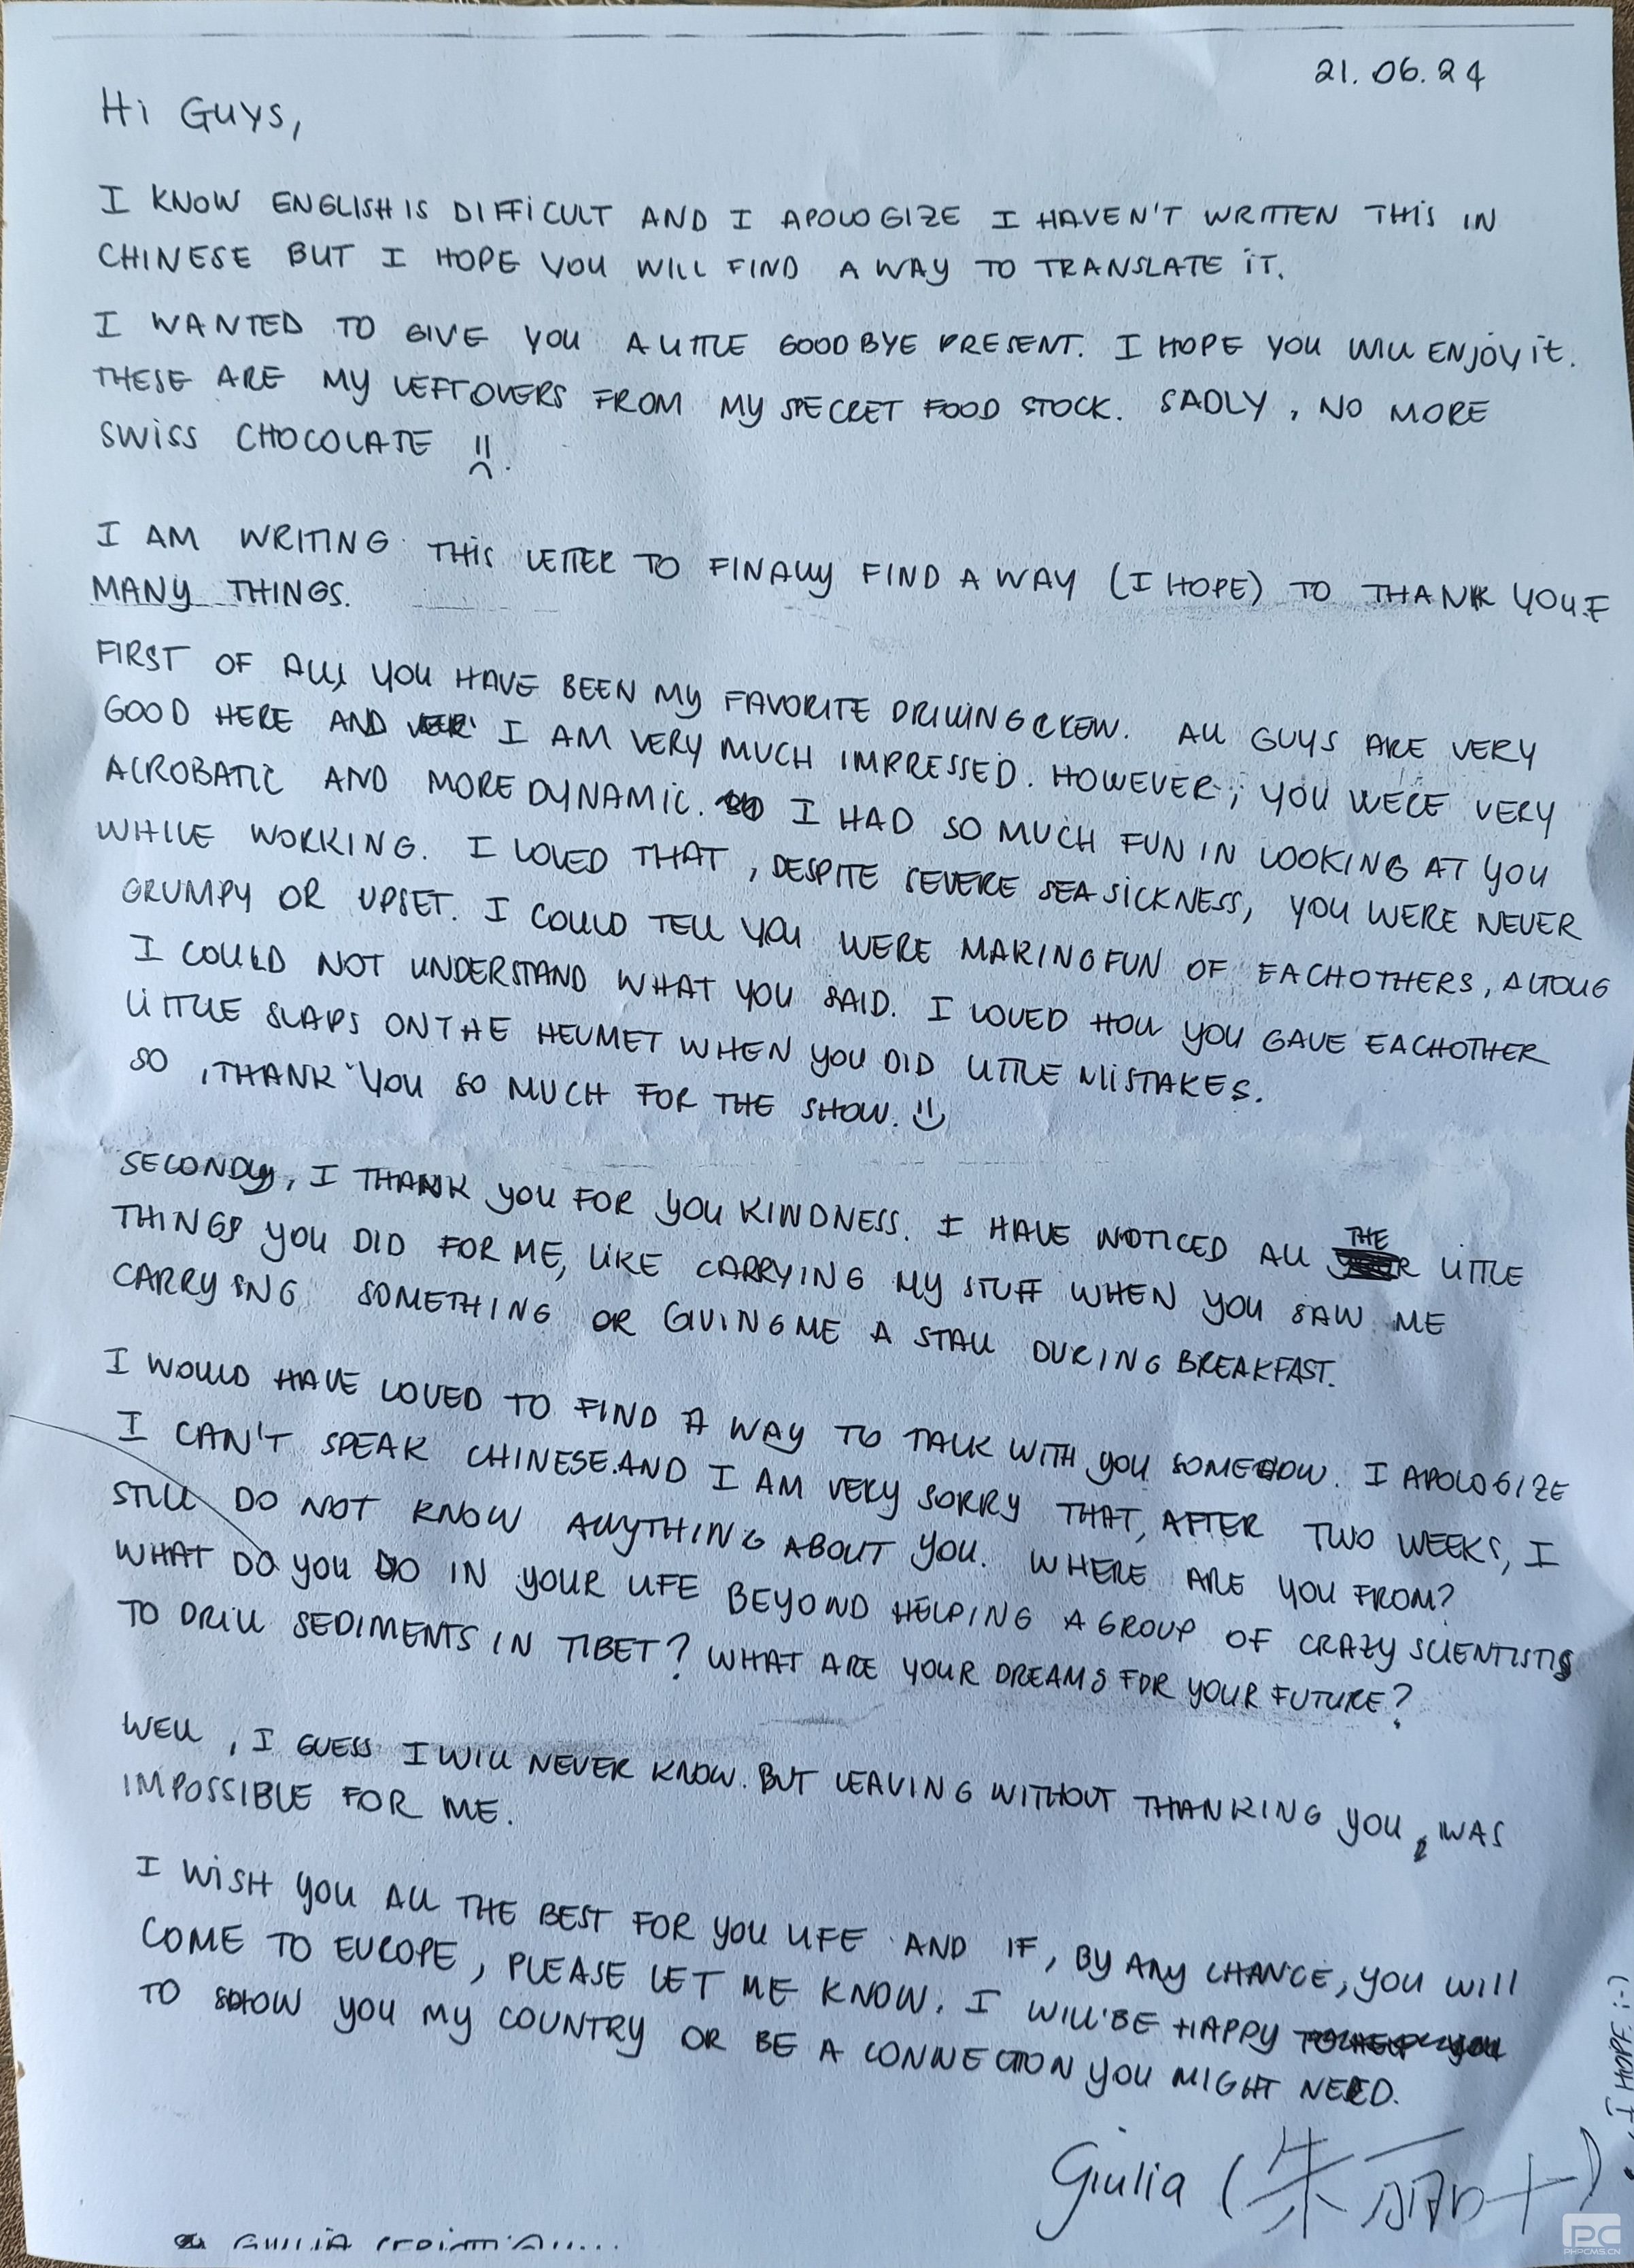 21.06.24
Hi GUYS,
I KNOW ENGLISH IS DIFFICULT AND I APOLOGIZE I HAVEN'T WRITTEN THIS IN
CHINESE BUT I HOPE YOU WILL FIND A WAY TO TRANSLATE IT.
I WANTED TO GIVE YOU A LITTLE GOODBYE PRESENT. I HOPE YOU WILL ENJOY it.
THESE ARE MY LEFTOVERS FROM MY SECRET FOOD STOCK. SADLY, NO MORE
SWISS CHOCOLATE
I AM WRITING THIS LETTER TO FINALLY FIND A WAY (I HOPE) TO THANK YOU F
MANY THINGS.
FIRST OF ALL, YOU HAVE BEEN MY FAVORITE DRILLING CREW. ALL GUYS ARE VERY
GOOD HERE AND I AM VERY MUCH IMPRESSED. HOWEVER, YOU WERE VERY
ACROBATIC AND MORE DYNAMIC. I HAD SO MUCH FUN IN LOOKING AT YOU
WHILE WORKING. I LOVED THAT, DESPITE SEVERE SEA SICKNESS, YOU WERE NEVER
GRUMPY OR UPSET. I COULD TELL YOU WERE MAKING FUN OF EACHOTHERS, ALTOUG
I COULD NOT UNDERSTAND WHAT YOU SAID. I LOVED HOW YOU GAVE EACHOTHER
LITTLE SLAPS ON THE HELMET WHEN YOU DID LITTLE MISTAKES.
SO, THANK YOU SO MUCH FOR THE SHOW.
SECONDLY, I THANK YOU FOR YOU KINDNESS. I HAVE NOTICED ALL THE LITTLE
THINGS YOU DID FOR ME, LIKE CARRYING MY STUFF WHEN YOU SAW ME
CARRYING SOMETHING OR GIVING ME A STALL DURING BREAKFAST.
I WOULD HAVE LOVED TO FIND A WAY TO TALK WITH YOU SOMEHOW. I APOLOGIZE
I CAN'T SPEAK CHINESE. AND I AM VERY SORRY THAT, AFTER TWO WEEKS, I
STILL DO NOT KNOW ANYTHING ABOUT YOU. WHERE ARE YOU FROM?
WHAT DO YOU DO IN YOUR LIFE BEYOND HELPING A GROUP OF CRAZY SCIENTISTS
TO DRILL SEDIMENTS IN TIBET? WHAT ARE YOUR DREAMS FOR YOUR FUTURE?
WELL, I GUESS I WILL NEVER KNOW. BUT LEAVING WITHOUT THANKING YOU, WAS
IMPOSSIBLE FOR ME.
I WISH YOU ALL THE BEST FOR YOU LIFE AND IF, BY ANY CHANCE, YOU WILL
COME TO EUROPE, PLEASE LET ME KNOW. I WILL BE HAPPY
TO SHOW YOU MY COUNTRY OR BE A CONNECTION YOU MIGHT NEED.
Giulia (朱丽叶)
(I HOPE :-)
GIULIA
PHPCMS.CN